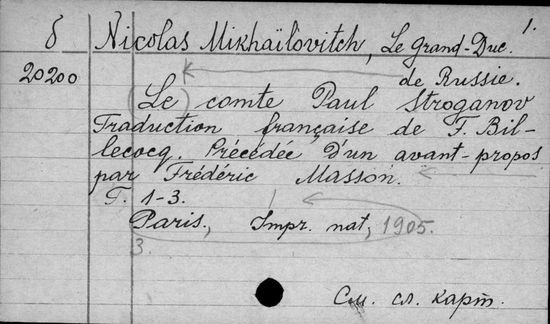 1.
δ Nicolas Mikhaïlovitch, Le Grand-Duc
20200 de Russie.
(Le) comte Paul Stroganov
Traduction française de F. Bil-
lecocq. Précédée d'un avant-propos
par Frédéric Masson.
T. 1-3.
Paris, Impr. nat, 1905.
3.
См. сл. карт.